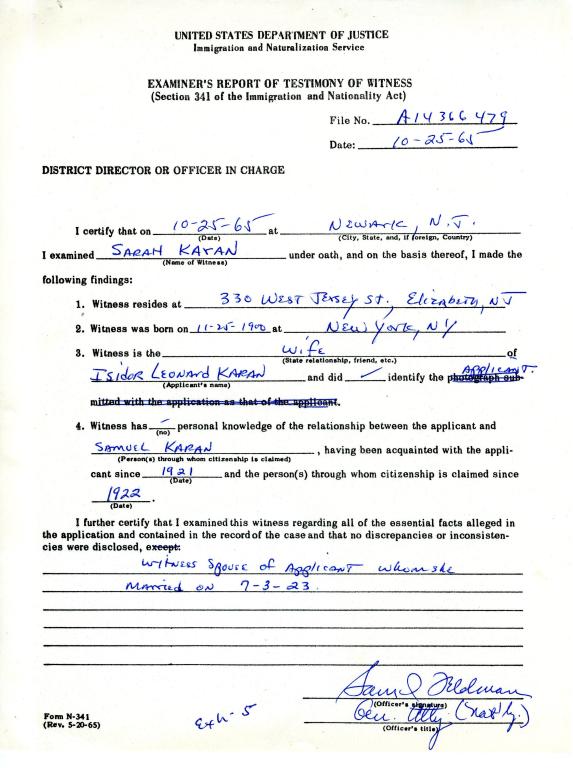 UNITED STATES DEPARTMENT OF JUSTICE
Immigration and Naturalization Service
EXAMINER'S REPORT OF TESTIMONY OF WITNESS
(Section 341 of the Immigration and Nationality Act)
File No. A14 366 479
Date: 10-25-65
DISTRICT DIRECTOR OR OFFICER IN CHARGE
I certify that on 10-25-65 at Newark, N.J.
(Date) (City, State, and, if foreign, Country)
I examined SARAH KARAN under oath, and on the basis thereof, I made the
(Name of Witness)
following findings:
1. Witness resides at 330 West Jersey St., Elizabeth, NJ
2. Witness was born on 11-25-1900 at New York, NY
3. Witness is the wife of
(State relationship, friend, etc.)
Isidor Leonard Karan and did ✓ identify the photograph sub- APPLICANT.
(Applicant's name)
mitted with the application as that of the applicant.
4. Witness has — personal knowledge of the relationship between the applicant and
(no)
SAMUEL KARAN, having been acquainted with the appli-
(Person(s) through whom citizenship is claimed)
cant since 1921 and the person(s) through whom citizenship is claimed since
(Date)
1922.
(Date)
I further certify that I examined this witness regarding all of the essential facts alleged in
the application and contained in the record of the case and that no discrepancies or inconsisten-
cies were disclosed, except:
Witness spouse of Applicant whom she
married on 7-3-23.
Samuel Feldman
(Officer's signature)
Gen. Atty (Nat'ly.)
(Officer's title)
Form N-341
(Rev. 5-20-65)
Exh-5